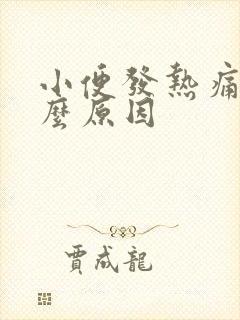 小便發熱痛
麼原因
賈成龍